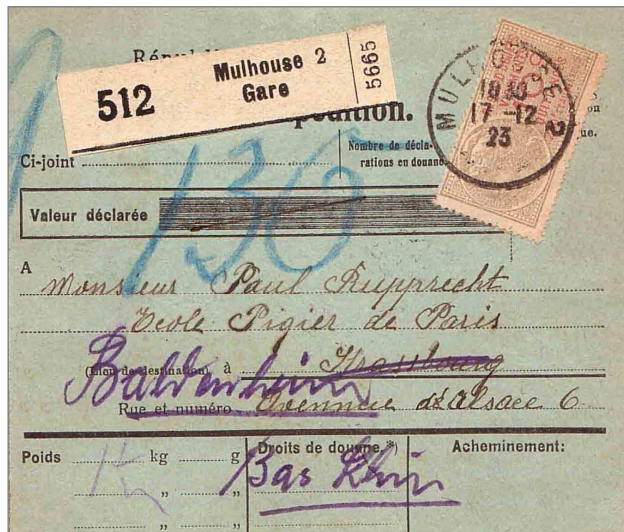 Mulhouse 2
Gare
512
5665
pédition.
MULHOUSE 2
18 30
17-12
23
on
ue.
Ci-joint
Nombre de décla-
rations en douane
130
Valeur déclarée
A
Monsieur Paul Rupprecht
Ecole Pigier de Paris
(Lieu de destination) à Strassbourg
Baldenheim
Rue et numéro Avennue d'Alsace 6
Poids kg g
Droits de douane *)
Acheminement:
" "
Bas Rhin
" "